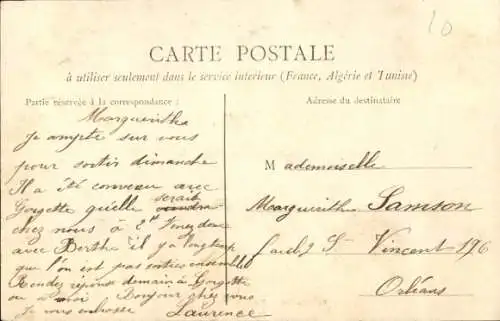 10
CARTE POSTALE
à utiliser seulement dans le service intérieur (France, Algérie et Tunisie)
Partie réservée à la correspondance :
Adresse du destinataire
Margueritte
Je compte sur vous
pour sortir dimanche
Il a été convenu avec
Gorgette qu'elle serait
chez nous à 2h
avec Berthe il y a longtemps
que l'on est pas sorties ensemble
Rendez réponse demain à Gorgette
ou a moi Bonjour chez vous
Je vous embrasse Laurence
Mademoiselle
Margueritte Samson
St Vincent 176
Orléans